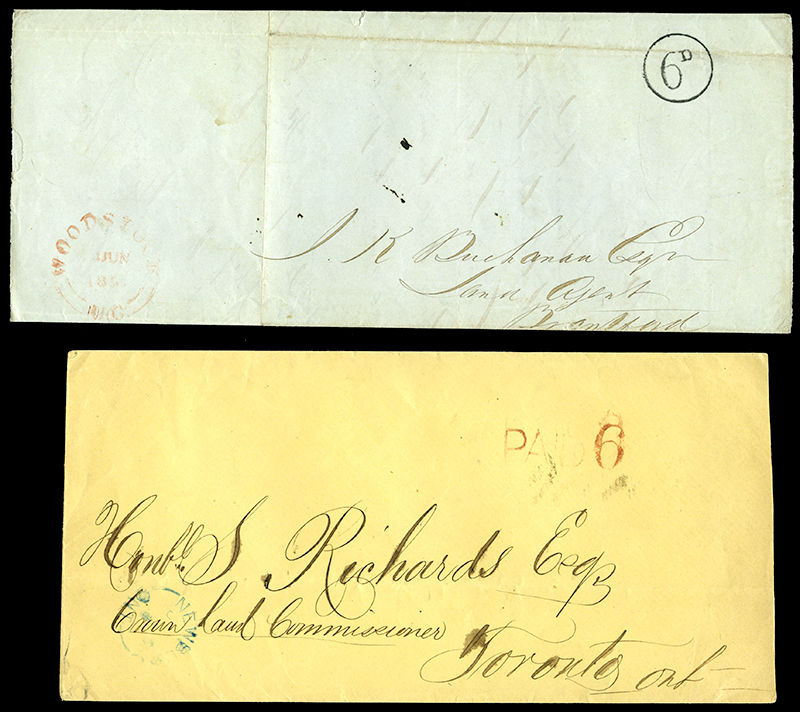 6D
WOODSTOCK
JUN
185
J. K Buchanan Esqr
Land Agent
Brantford
PAID 6
Honble. S Richards Esq
Crown Land Commissioner
Toronto Ont